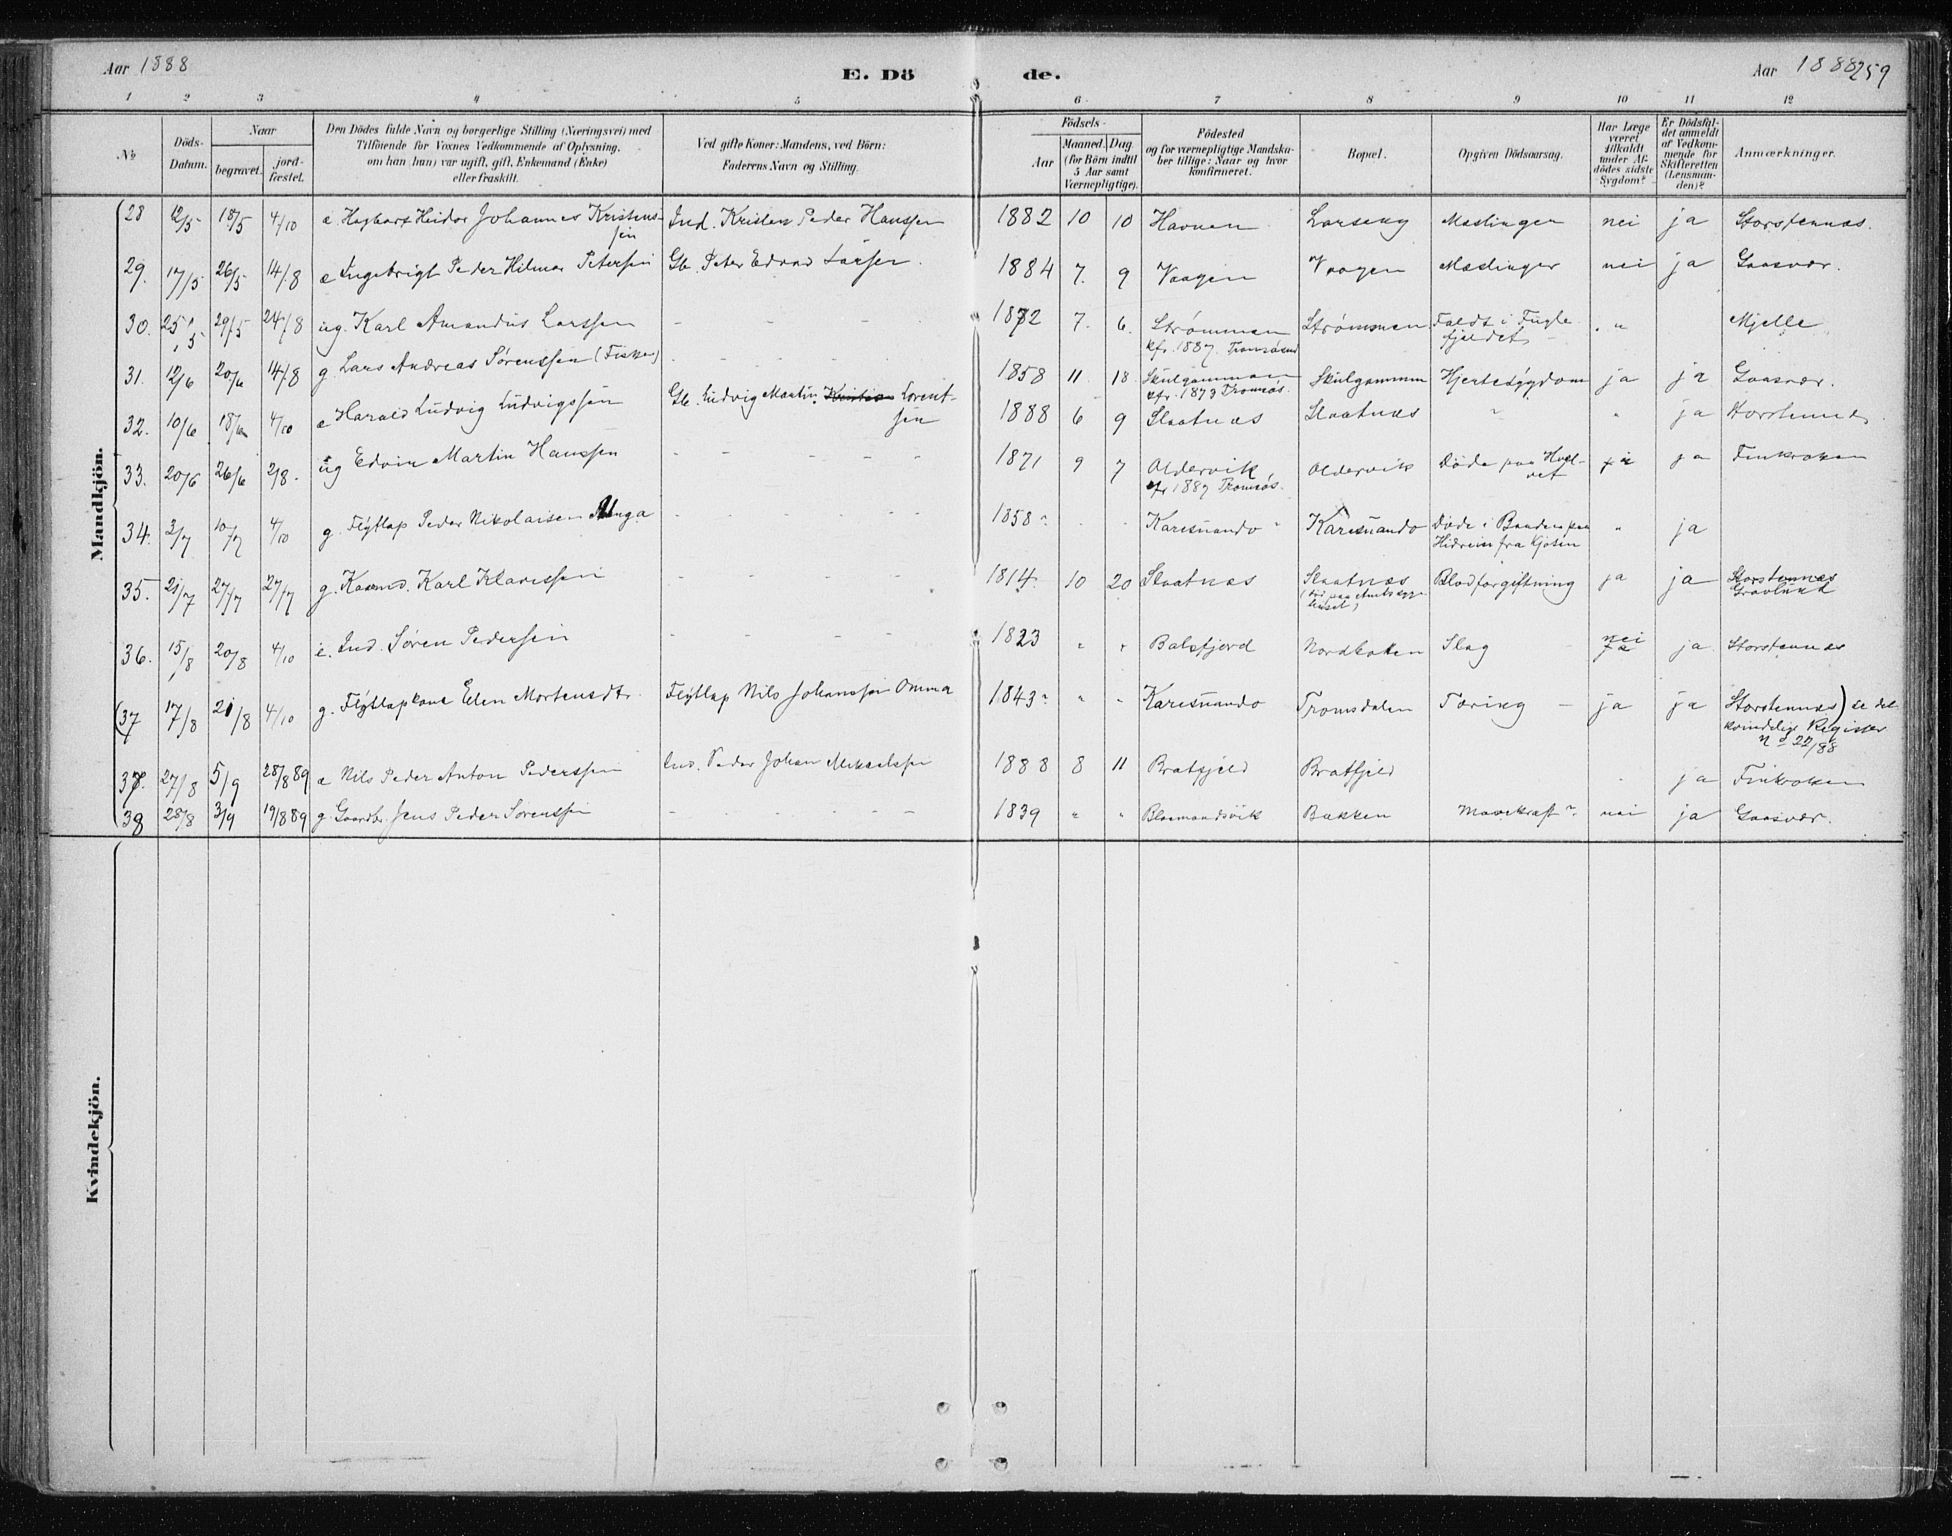 Aar 1888
E. Dö
de.
Aar 1888 259
1 2 3 4 5 6 7 8 9 10 11 12
No
Döds-Datum.
Naar
begravet.
jord-fæstet.
Den Dödes fulde Navn og borgerlige Stilling (Næringsvei) med
Tilföiende for Voxnes Vedkommende af Oplysning,
om han (hun) var ugift, gift, Enkemand (Enke)
eller fraskilt.
Ved gifte Koner: Mandens, ved Börn:
Faderens Navn og Stilling.
Födsels-
Aar
Maaned. Dag
(for Börn indtil
5 Aar samt
Værnepligtige).
Födested
og for værnepligtige Mandska-
ber tillige: Naar og hvor
konfirmeret.
Bopæl.
Opgiven Dödsaarsag.
Har Læge
været
tilkaldt
under Af-
dödes sidste
Sygdom?
Er Dödsfal-
det anmeldt
af Vedkom-
mende for
Skifteretten
(Lensman-
den)?
Anmærkninger.
Mandkjön.
28 12/5 18/5 4/10 e. Hagbart Heidar Johannes Kristens-
sen Ind. Kristen Peder Hanssen 1882 10 10 Havnen Larseng Mæslinger nei ja Storstennæs.
29. 17/5 26/5 14/8 e Ingebrigt Peder Hilmar Petersen Gb. Peter Edvard Larsen. 1884 7. 9 Vaagen Vaagen Mæslinger nei ja Gaasvær.
30. 25/5 29/5 24/8 ug. Karl Amandus Larssen - - - 1872 7. 6. Strømmen
kfr. 1887. Tromsøsund Strømmen Faldt i Fugle-
fjeldet " Mjelle
31. 12/6 20/6 14/8 g. Lars Andreas Sørenssen (Fisker) - - - 1858 11 18. Skulgammen
kfr. 1873 Tromsøs. Skulgammen Hjertesygdom ja ja Gaasvær.
32. 10/6 18/6 4/10 e Harald Ludvig Ludvigssen Gb. Ludvig Martin Kristian Lorent-
sen 1888 6 9 Slaatnæs Slaatnæs " " ja Storstennæs
33. 20/6 26/6 2/8. ug Edvin Martin Hanssen - - - 1871 9 7 Oldervik,
kfr 1887 Tromsøs. Oldervik Døde paa Hval-
vet ja ja Finkroken
34. 3/7 10/7 4/10 g. Flytlap Peder Nikolaisen Unga - - - 1858 " Karesuando " Karesuando Døde i Baaden paa
Hidreise fra Kjosen " ja
35. 21/7 27/7 27/7 g. Kaarmd. Karl Klaussen - - - 1814. 10 20 Slaatnæs Slaatnæs Blodforgiftning ja ja Storstennæs
Gravlund
36. 15/8 20/8 4/10 e. Ind. Søren Pedersen - - - 1823 " " Balsfjord Nordbotten Slag nei
ja ja Storstennæs
(37 17/8 21/8 4/10 g. Flytlapkone Elen Mortensdtr. Flytlap Nils Johanssen Omma 1843 " " " Karesuando Tromsdalen Tæring ja ja Storstennæs) se det
kvindelige Register
No 22/88
37. 27/8 5/9 28/8 89 e Nils Peder Anton Pederssen Ind. Peder Johan Mikaelssen 1888 8 11 Bratfjeld Bratfjeld ja Finkroken
38 28/8 3/9 19/8 89 g. Gaardbr. Jens Peder Sørenssen - - - 1839 " " Blaamandsvik Bakken Mavekræft " nei ja Gaasvær.
Kvindekjön.